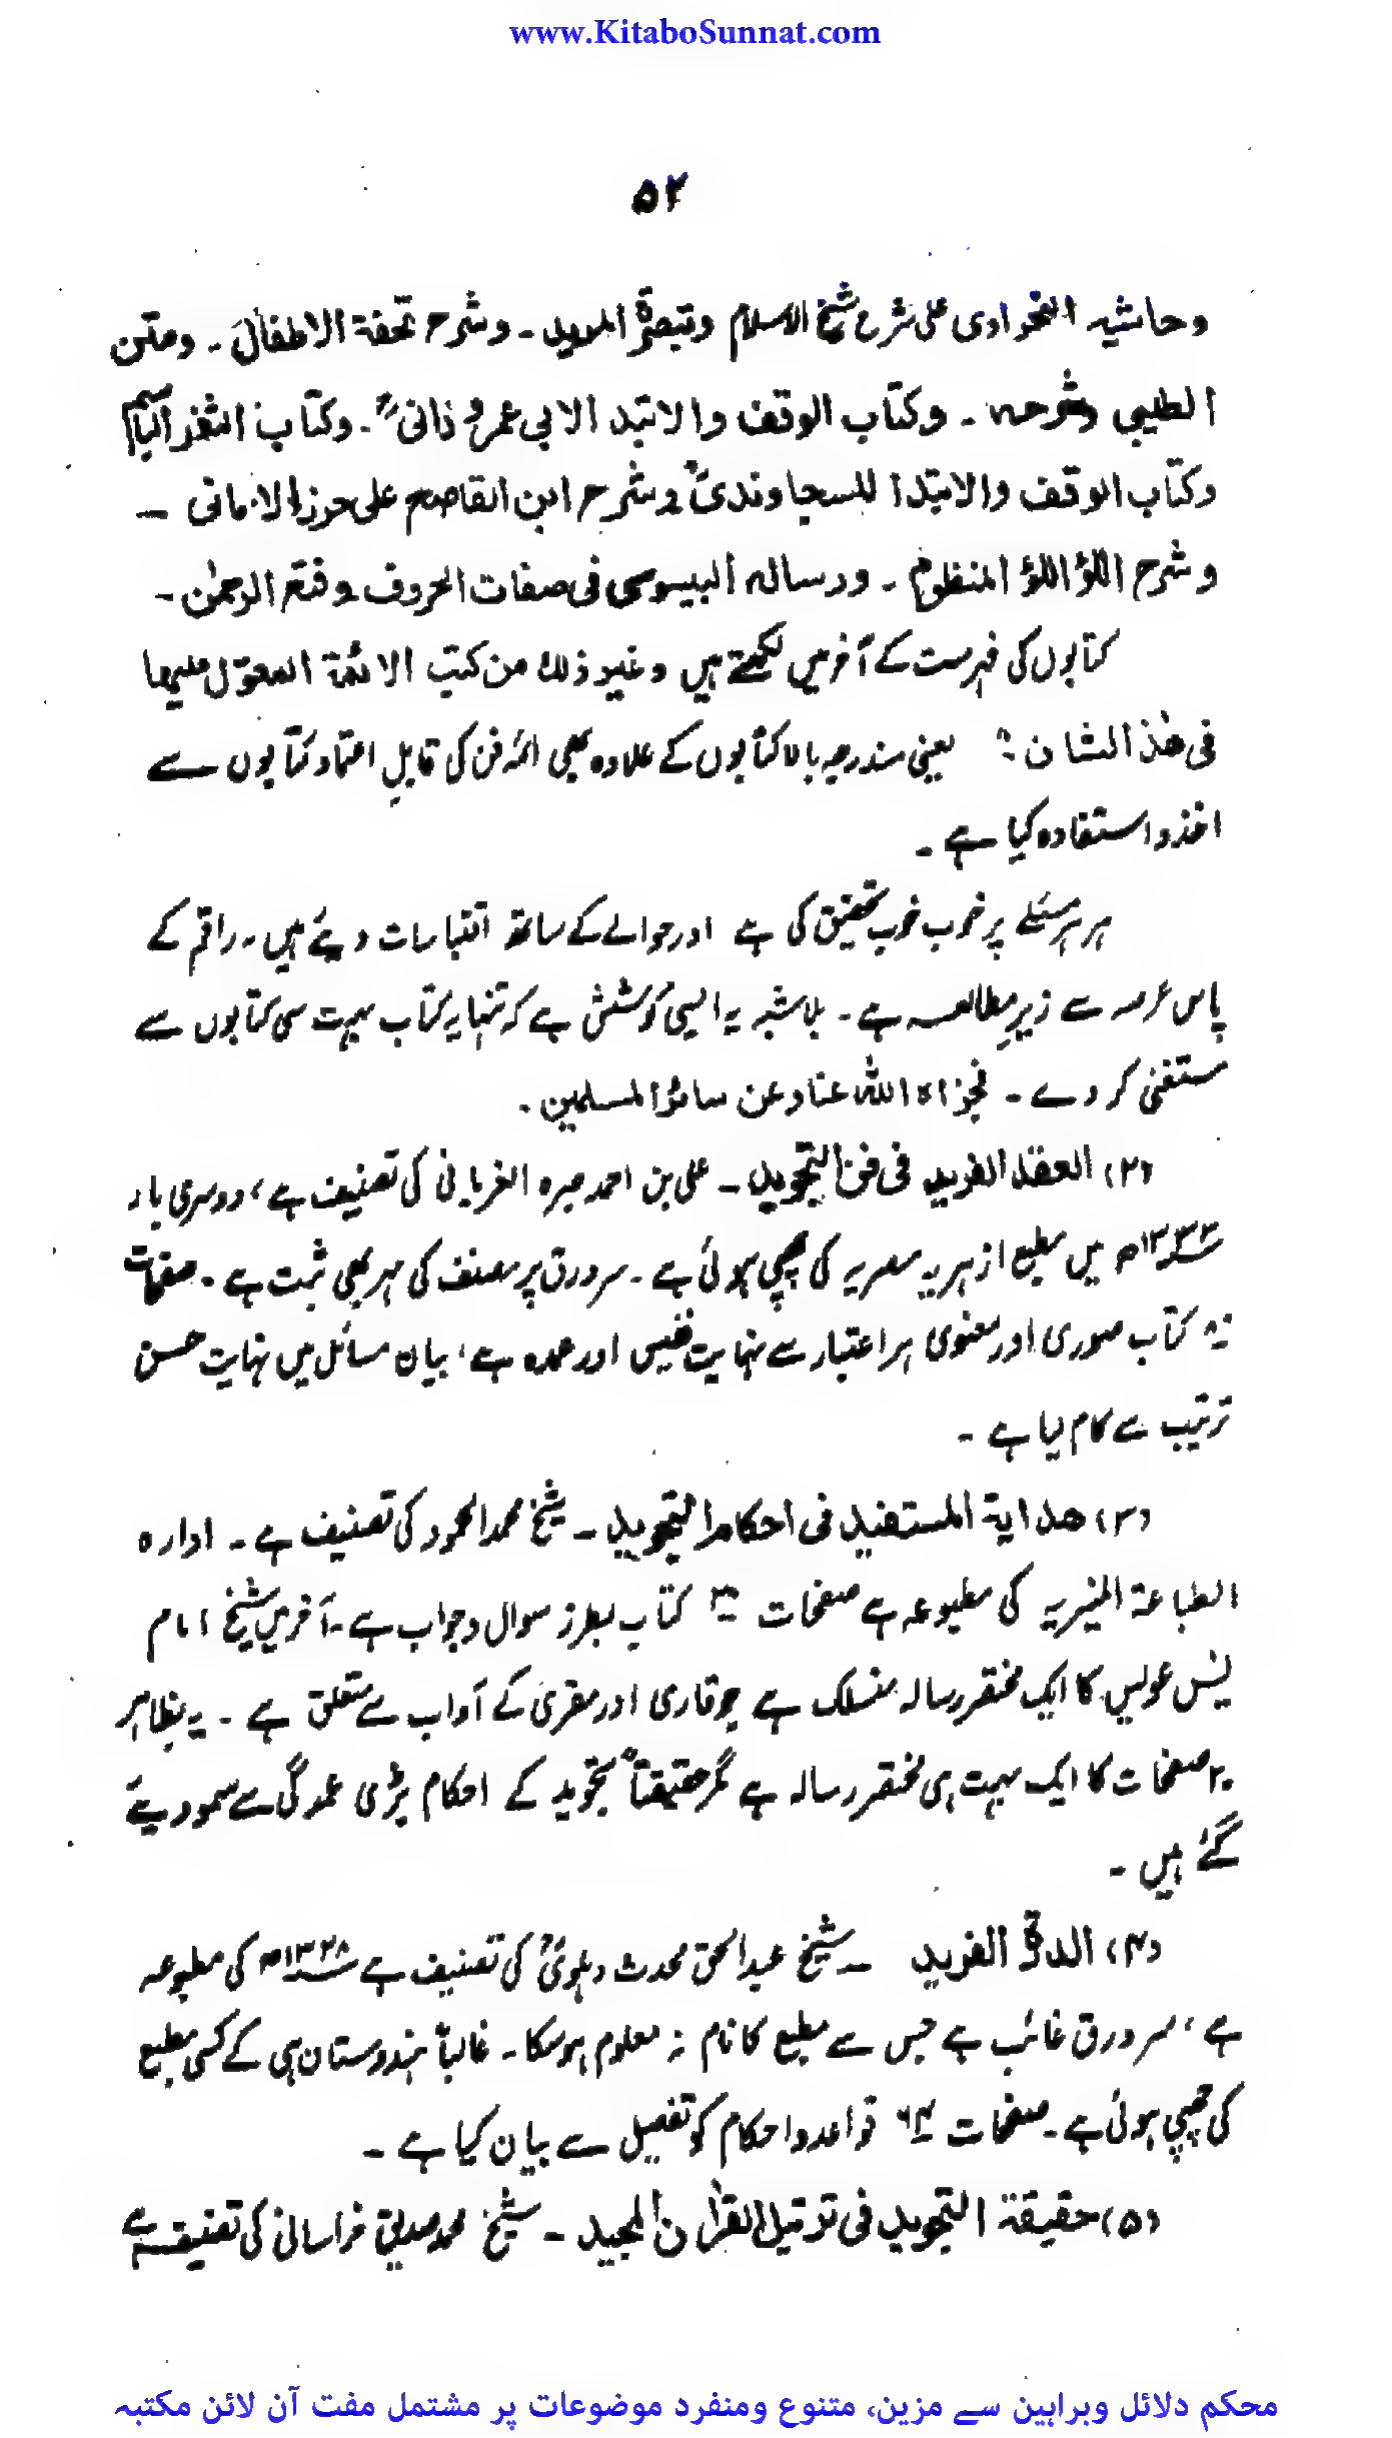 www.KitaboSunnat.com
۵۲
وحاشیہ النحراوی علی شرح شیخ الاسلام وتبصرۃ المرید۔ وشرح تحفۃ الاطفال۔ ومتن
الطیبی وشرحہ۔ وکتاب الوقف والابتدا لابی عمرو دانیؒ۔ وکتاب الثغر الباسم
وکتاب الوقف والابتدا للسجاوندیؒ وشرح ابن القاصح علی حرز الامانی ۔
وشرح اللؤ اللؤ المنظوم ۔ ورسالہ البیسوسی فی صفات الحروف وفتح الرحمٰن۔
کتابوں کی فہرست کے آخر میں لکھتے ہیں وغیر ذلک من کتب الائمۃ المعوّل علیہا
فی ھٰذ الشان : یعنی مندرجہ بالا کتابوں کے علاوہ بھی ائمہ فن کی قابلِ اعتماد کتابوں سے
اخذ و استفادہ کیا ہے ۔
ہر ہر مسئلے پر خوب خوب تحقیق کی ہے اور حوالے کے ساتھ اقتباسات دیئے ہیں۔ راقم کے
پاس عرصہ سے زیرِ مطالعہ ہے ۔ بلاشبہ یہ ایسی کوشش ہے کہ تنہا یہ کتاب بہت سی کتابوں سے
مستغنی کر دے ۔ فجزاہ اللّٰہ عنا وعن سائر المسلمین ۔
(۲) العقد الفرید فی فن التجوید ۔ علی بن احمد صبرہ الغریانی کی تصنیف ہے، دوسری بار
۱۳۳۳ھ میں مطبع ازہریہ مصریہ کی چھپی ہوئی ہے ۔ سرورق پر مصنف کی مہر بھی ثبت ہے ۔ صفحات
کتاب صوری اور معنوی ہر اعتبار سے نہایت نفیس اور عمدہ ہے، بیان مسائل میں نہایت حسن
ترتیب سے کام لیا ہے ۔
(۳) ھدایۃ المستفید فی احکام التجوید ۔ شیخ محمد المحمود کی تصنیف ہے ۔ ادارہ
الطباعۃ المنیریہ کی مطبوعہ ہے صفحات کتاب بطرز سوال وجواب ہے ۔ آخر میں شیخ امام
یٰس عولیس کا ایک مختصر رسالہ منسلک ہے جو قاری اور مقری کے آداب سے متعلق ہے ۔ یہ بظاہر
۲۰ صفحات کا ایک بہت ہی مختصر رسالہ ہے مگر حقیقتاً تجوید کے احکام بڑی عمدگی سے سمو دیئے
گئے ہیں ۔
(۴) الدرّ الفرید ۔ شیخ عبدالحق محدث دہلویؒ کی تصنیف ہے ۱۳۲۸ھ کی مطبوعہ
ہے، سرورق غائب ہے جس سے مطبع کا نام نہ معلوم ہو سکا ۔ غالباً ہندوستان ہی کے کسی مطبع
کی چھپی ہوئی ہے ۔ صفحات ۶۴ قواعد و احکام کو تفصیل سے بیان کیا ہے ۔
(۵) حقیقۃ التجوید فی ترتیل القرآن المجید ۔ شیخ محمد صدیق خراسانی کی تصنیف ہے
محکم دلائل وبراہین سے مزین، متنوع ومنفرد موضوعات پر مشتمل مفت آن لائن مکتبہ